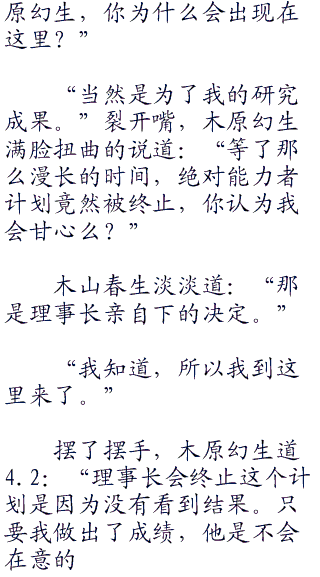 原幻生，你为什么会出现在
这里？”
“当然是为了我的研究
成果。”裂开嘴，木原幻生
满脸扭曲的说道：“等了那
么漫长的时间，绝对能力者
计划竟然被终止，你认为我
会甘心么？”
木山春生淡淡道：“那
是理事长亲自下的决定。”
“我知道，所以我到这
里来了。”
摆了摆手，木原幻生道
4.2：“理事长会终止这个计
划是因为没有看到结果。只
要我做出了成绩，他是不会
在意的